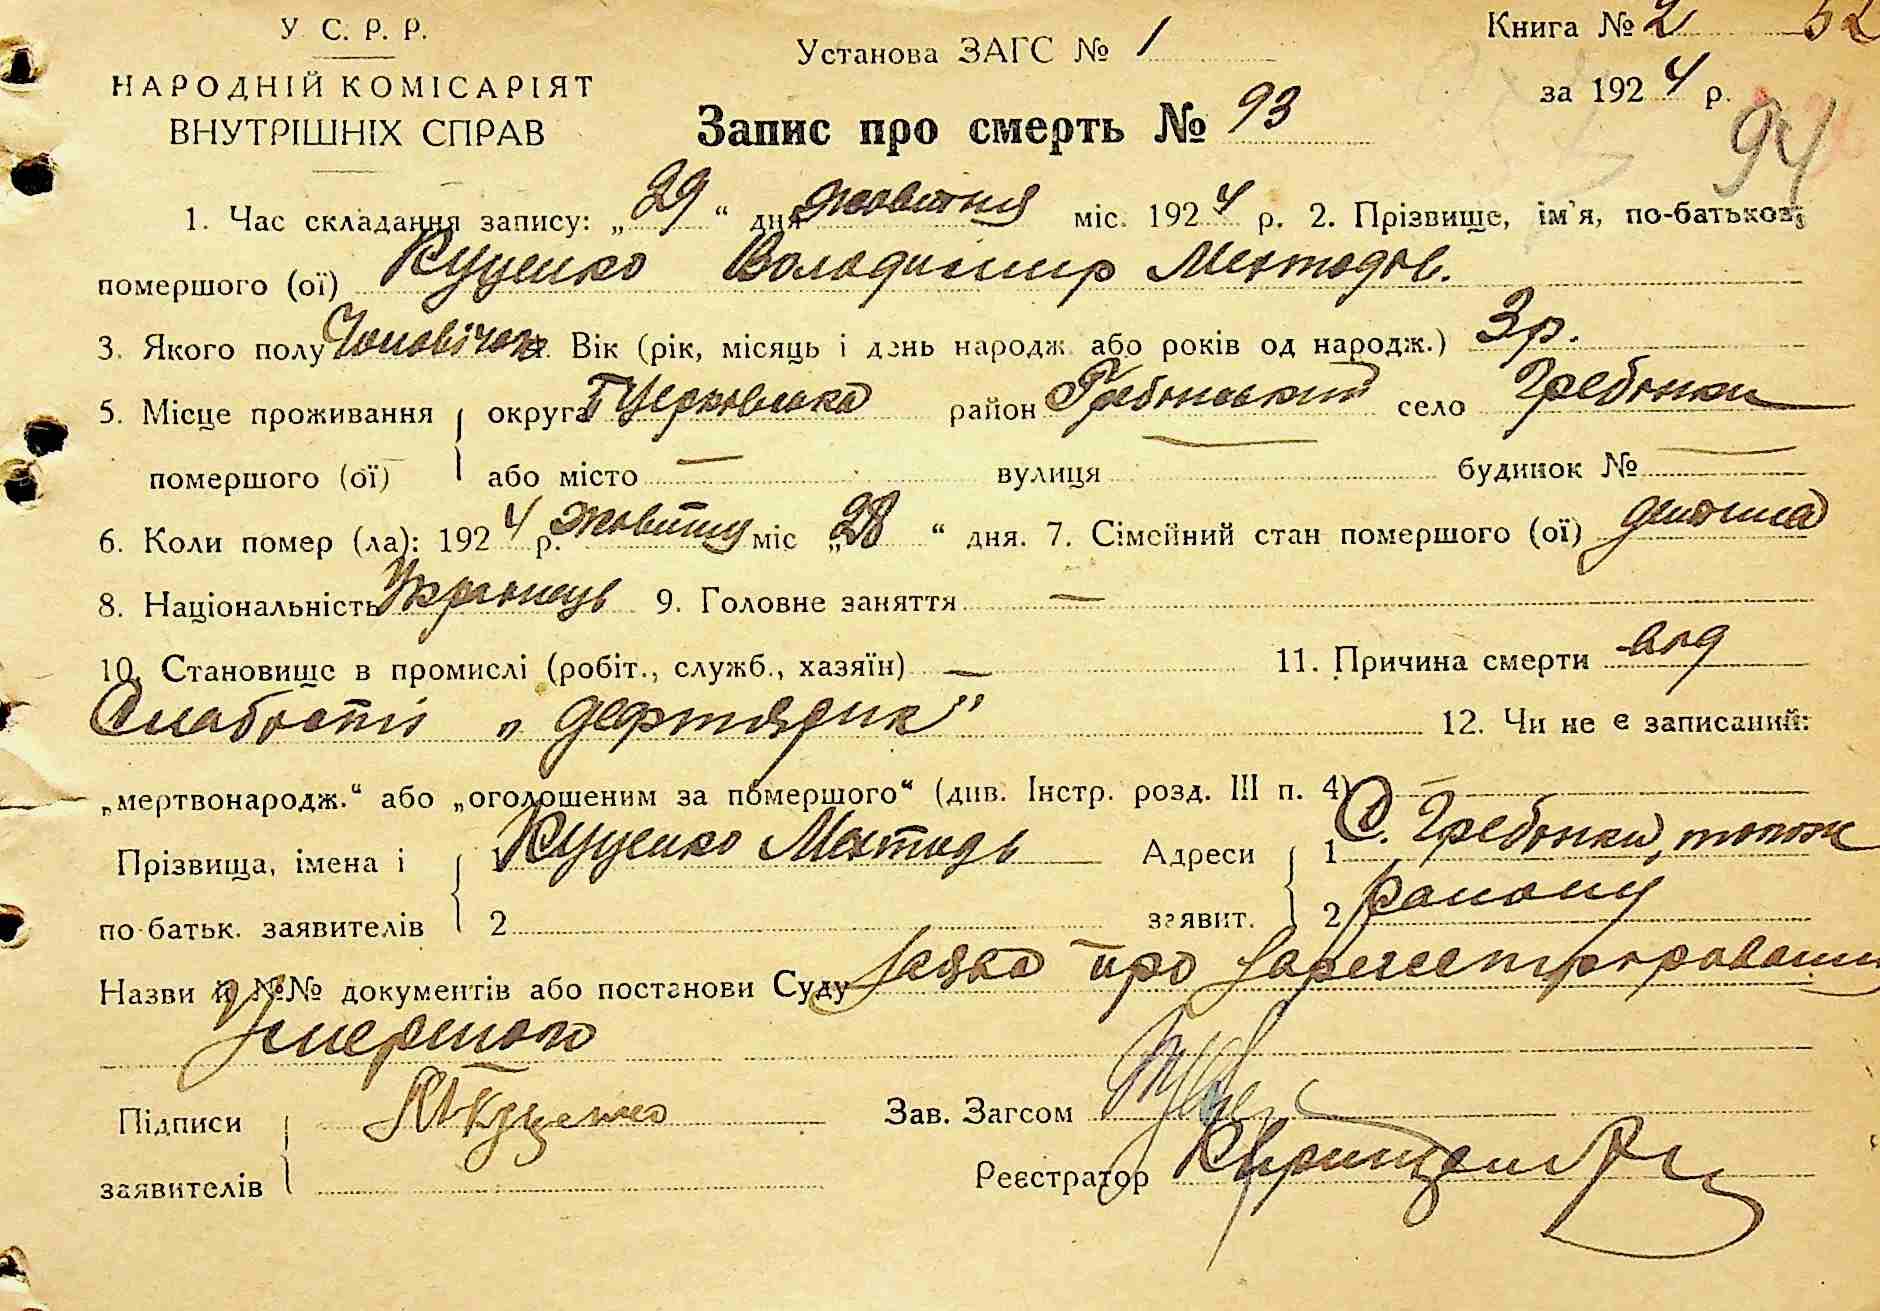 У. С. Р. Р.
НАРОДНІЙ КОМІСАРІЯТ
ВНУТРІШНІХ СПРАВ
Установа ЗАГС № 1
Книга № 2 52
за 1924 р.
94
Запис про смерть № 93
1. Час складання запису: „29“ дня жовтня міс. 1924 р. 2. Прізвище, ім'я, по-батькові
помершого (ої) Куценко Володимир Мехтодов.
3. Якого полу Чоловічої Вік (рік, місяць і день народж. або років од народж.) 3 р.
5. Місце проживання округа БЦерковська район Гребінський село Гребінки
помершого (ої) або місто — вулиця — будинок № —
6. Коли помер (ла): 1924 р. жовтня міс „28“ дня. 7. Сімейний стан помершого (ої) дитина
8. Національність Українець 9. Головне заняття —
10. Становище в промислі (робіт., служб., хазяїн) — 11. Причина смерти від
Слабості „дефтярик" 12. Чи не є записаний:
„мертвонародж.“ або „оголошеним за помершого“ (див. Інстр. розд. III п. 4) —
Прізвища, імена і 1 Куценко Мехтодь Адреси 1 С. Гребінки, того ж
по батьк. заявителів 2 заявит. 2 району
Назви й №№ документів або постанови Суду Заява про зарегестрировання
Умершого
Підписи М Куценко Зав. Загсом
заявителів Реєстратор